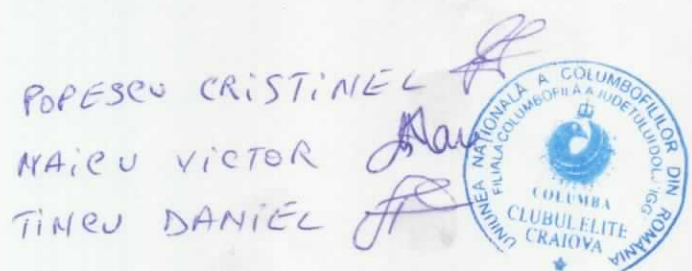 POPESCU CRISTINEL
NAICU VICTOR
TINCU DANIEL
UNIUNEA NAȚIONALĂ A COLUMBOFILILOR DIN ROMÂNIA
FILIALA COLUMBOFILĂ A JUDEȚULUI DOLJ
COLUMBA
CLUBUL ELITE
CRAIOVA